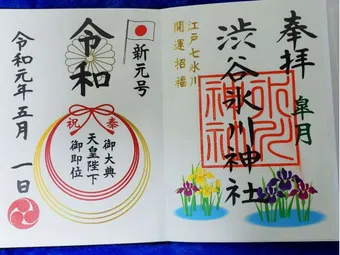 奉拝
皐月
渋谷氷川神社
江戸七氷川
開運招福
氷川
神社
新元号
令和
奉祝
御大典
天皇陛下
御即位
令和元年五月一日